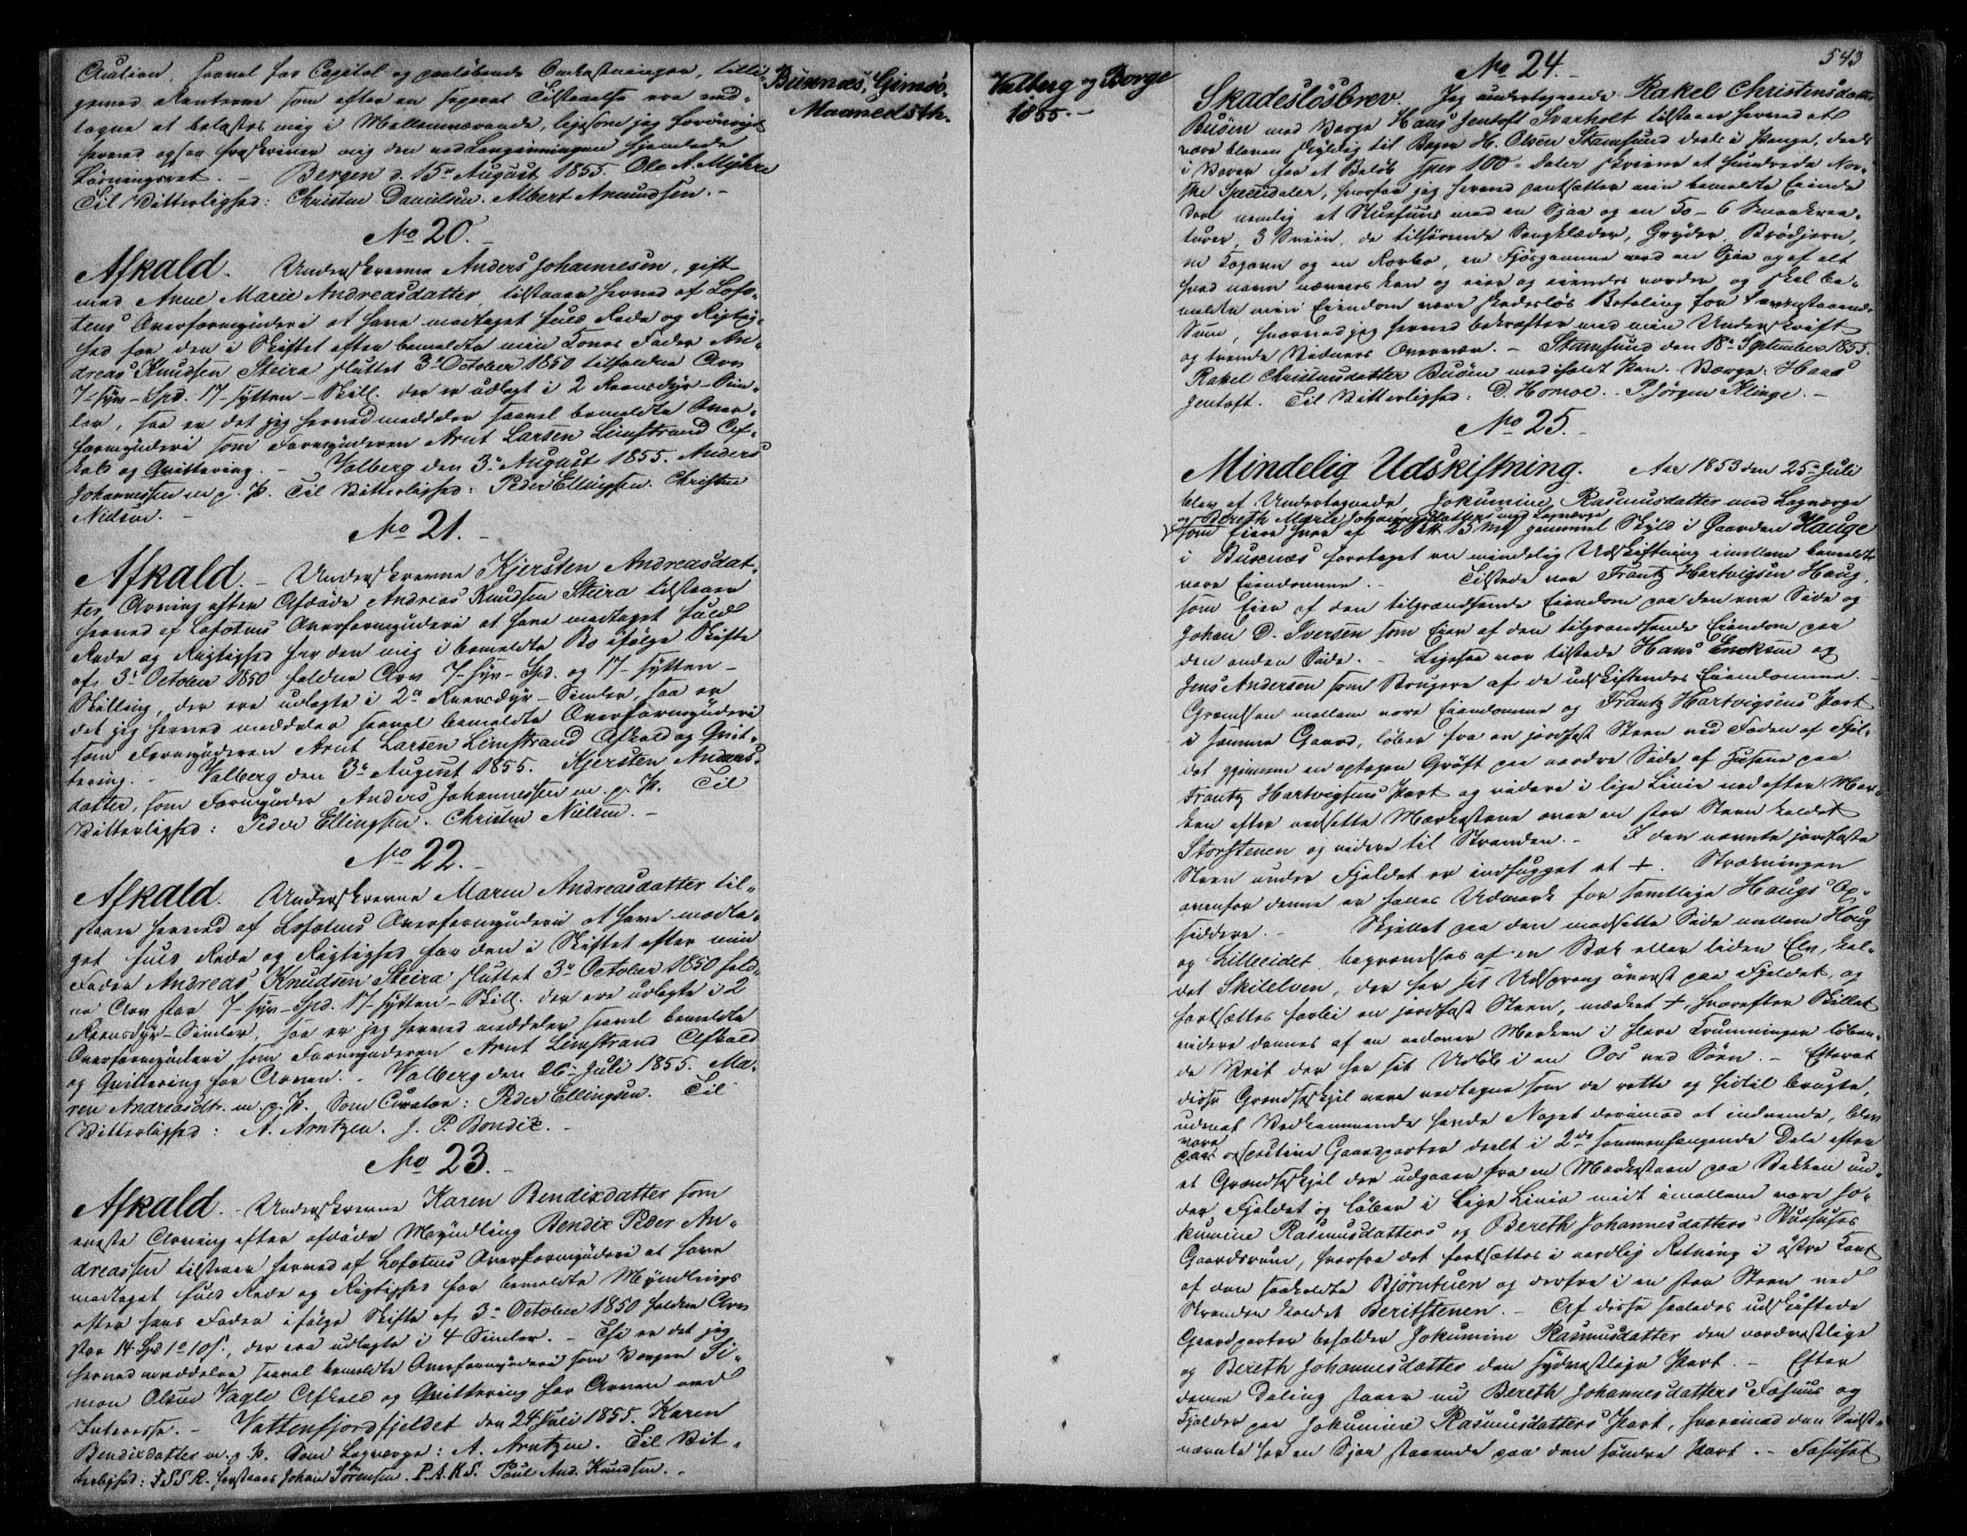 Caution, saavel for Capital og paaløbende Omkostninger, tilli-
gemed Renterne som efter en seperat Tilstaaelse ere ved-
tagne at belastes mig i Mellemværende, ligesom jeg forøvrigt
herved ogsaa fraskriver mig den ved Lovgivningen hjemlede
Løsningsret. – Bergen d. 15de August 1855. Ole A. Myhre
Til Vitterlighed: Christen Danielsen. Albert Amundsen. –
No 20. –
Afkald. Underskrevne Anders Johannesen, gift
med Anne Marie Andreasdatter, tilstaaer herved af Lofo-
tens Overformynderi at have modtaget fuld Rede og Rigtig-
hed for den i Skiftet efter bemeldte min Kones Fader An-
dreas Knudsen Steira sluttet 3de October 1850 tilfaldne Arv
7-syv-Spd. 17-sytten-Skill. der er udlagt i 2 Reensdyr-Sim-
ler, saa er det jeg herved meddeler saavel bemeldte Over-
formynderi som Formynderen Arnt Larsen Limstrand Af-
kald og Qvittering. – Valberg den 3de August 1855. Anders
Johannessen m. p. P. Til Vitterlighed: Peder Ellingsen. Christen
Nielsen. –
No 21. –
Afkald. – Underskrevne Kjersten Andreasdat-
ter Arving efter Afdøde Andreas Knudsen Steira tilstaaer
herved af Lofotens Overformynderi at have modtaget fuld
Rede og Rigtighed for den mig i bemeldte Bo ifølge Skifte
af 3de October 1850 faldne Arv 7-syv-Spd. og 17-sytten-
Skilling, der ere udlagte i 2de Reensdyr-Simler, saa er
det jeg herved meddeler saavel bemeldte Overformynderi
som Formynderen Arnt Larsen Limstrand Afkald og Qvit-
tering. – Valberg den 3de August 1855. Kjersten Andreas-
datter, som Formynder Anders Johannessen m. p. P. Til
Vitterlighed: Peder Ellingsen. Christen Nielsen. –
No 22. –
Afkald. Underskrevne Maren Andreasdatter til-
staaer herved af Lofotens Overformynderi at have modta-
get fuld Rede og Rigtighed for den i Skiftet efter min
Fader Andreas Knudsen Steira sluttet 3de October 1850 fald-
ne Arv stor 7-syv-Spd. 17-sytten-Skill. der ere udlagte i 2
Reensdyr-Simler, saa er jeg herved meddeler saavel bemeldte
Overformynderi som Formynderen Arnt Limstrand Afkald
og Qvittering for Arven. – Valberg den 26de Juli 1855. Ma-
ren Andreasdtr. m. p. P. Som Curator: Peder Ellingsen. Til
Vitterlighed: A. Arntzen. J. P. Bendix. –
No 23. –
Afkald. – Underskrevne Karen Bendixdatter som
eneste Arving efter afdøde Myndling Bendix Peder An-
dreassen tilstaaer herved af Lofotens Overformynderi at have
modtaget fuld Rede og Rigtighed for bemeldte Myndlings
efter hans Fader ifølge Skifte af 3de October 1850 faldne Arv
stor 14 Spd 1 10 s., der ere udlagte i 4 Simler. – Thi er det jeg
herved meddeler saavel bemeldte Overformynderi som Vergen Si-
mon Olsen Vagle Afkald og Qvittering for Arven med
Interesse. – Vattenfjordfjeldet den 24 Juli 1855. Karen
Bendixdatter m. p. P. Som Lagværge: A. Arntzen. Til Vit-
terlighed: J.S.S.R. forstaaes Johan Sørensen. P.A.K.S. Paul And. Knudsen. –
Buxnæs, Gimsø,
Maanedsth.
Valberg og Borge
1855. –
543
No 24. –
Skadesløsbrev. Jeg undertegnede Rakel Christensdatter
Buøen med Værge Hans Jentoft Svarholt tilstaaer herved at
være bleven skyldig til Røger H. Olsen Stamsund deels i Penge, deels
i Varer for et Beløb Spes 100- daler skriver et hundrede Nor-
ske Speciedaler, hvorfor jeg herved pantsætter min bemeldte Eien-
dom nemlig et Stuehuus med en Sjaa og en Ko - 6 Smaakrea-
turer, 3 Sviin, de tilhørende Sengklæder, Gryder, Brødjern,
en Kogovn og en Rorbo, en Fjøsgamme med en Sjaa og af alt
hvad navn nævnes kan og eier og eiendes vorder og skal be-
meldte min Eiendom være skadesløs Betaling for ovenstaaende
Sum, hvorved jeg herved bekræfter med min Underskrift
og tvende Vidners Overvær. – Stamsund den 18de September 1855.
Rakel Christensdatter Buøen med iholdt Pen. Værge: Hans
Jentoft. Til Vitterlighed: D. Homoe. P. Jørgen Klinge. –
No 25. –
Mindelig Udskiftning. Aar 1853 den 25de Juli
blev af Undertegnede, Jokumine Rasmusdatter med Lagværge
og Bereth Marie Johannesdatters med Lagværge
som Eiere hver af 2 Pd. 13 Mk gammel Skyld i Gaarden Hauge
i Buxnæs foretaget en mindelig Udskiftning imellem bemeldte
vore Eiendomme. – Tilstede var Frantz Hartvigsen Haug,
som Eier af den tilgrændsende Eiendom paa den ene Side og
Johan D. Iversen som Eier af den tilgrændsende Eiendom paa
den anden Side. – Ligesaa var tilstede Hans Encksen og
Jens Andersen som Brugere af de udskiftendes Eiendomme. –
Grændsen mellem vore Eiendomme og Frantz Hartvigsens Part
i samme Gaard, løber fra en jordfast Steen ved Foden af Fjel-
det gjennem en optagen Grøft paa nordre Side af Husene paa
Frantz Hartvigsens Part og videre i lige Linie ned efter Mar-
ken efter nedsatte Mærkestene over en stor Steen kaldet
Storstenen og videre til Stranden. – I den nævnte jordfaste
Steen under Fjeldet er indhugget et +. Strækningen
ovenfor denne er fælles Udmark for samtlige Haugs Op-
siddere. – Skjellet paa den modsatte Side mellem Haug
og Lilleeidet begrændses af en Bæk eller liden Elv, kal-
det Skilelven, der har sit Udspring øverst paa Fjeldet, og
fortsættes forbi en jordfast Steen, mærket +, hvorefter Skillet
videre dannes af en nedover Marken i flere Krumninger løben-
de Veit der har sit Udløb i en Oos ved Søen. – Efterat
disse Grændseskjel vare vedtagne som de rette og hidtil brugte,
udenat Vedkommende havde Noget derimod at indvende, blev
vore
respective Gaardparter deelt i 2de sammenhængende Dele efter
et Grændseskjel der udgaaer fra en Mærkesteen paa Bakken un-
der Fjeldet og løber i Lige Linie midt imellem vore Jo-
kumine Rasmusdatters og Bereth Johannesdatters Stuehuses
Gaardsrum, hvorfra det fortsættes i nordlig Retning i østre Kant
af den saakaldte Bjørntuen og derfra i en stor Steen ved
Stranden kaldet Beritstenen. – Af disse saaledes udskiftede
Gaardparter beholder Jokumine Rasmusdatter den nordvestlige
og Bereth Johannesdatter den sydvestlige Part. – Efter
denne Deling staaer nu Bereth Johannesdatters Fæhuus og
Fjelder paa Jokumine Rasmusdatters Part, hvorimod den Sidst-
nævnte har en Sjaa staaende paa den søndre Part. – Fæhuset